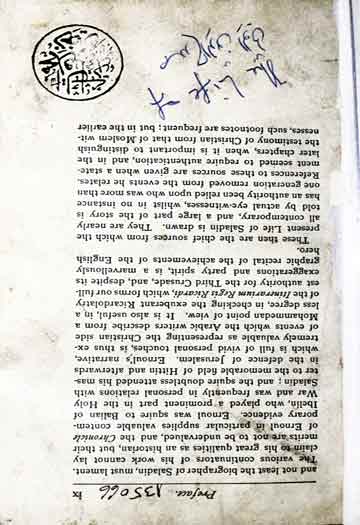 Preface. 135066 ix
and not least the biographer of Saladin, must lament.
The various continuators of his work cannot lay
claim to his great qualities as an historian, but their
merits are not to be undervalued, and the Chronicle
of Ernoul in particular supplies valuable contem-
porary evidence. Ernoul was squire to Balian of
Ibelin, who played a prominent part in the Holy
War and was frequently in personal relations with
Saladin; and the squire doubtless attended his mas-
ter to the memorable field of Hittin and afterwards
in the defence of Jerusalem. Ernoul's narrative,
which is full of vivid personal touches, is thus ex-
tremely valuable as representing the Christian side
of events which the Arabic writers describe from a
Mohammedan point of view. It is also useful, in a
less degree, in checking the exuberant Ricardolatry
of the Itinerarium Regis Ricardi, which forms our full-
est authority for the Third Crusade, and, despite its
exaggerations and party spirit, is a marvellously
graphic recital of the achievements of the English
hero.
These then are the chief sources from which the
present Life of Saladin is drawn. They are nearly
all contemporary, and a large part of the story is
told by actual eye-witnesses, whilst in no instance
has an authority been relied upon who was more than
one generation removed from the events he relates.
References to these sources are given when a state-
ment seemed to require authentication, and in the
later chapters, when it is important to distinguish
the testimony of Christian from that of Moslem wit-
nesses, such footnotes are frequent: but in the earlier
The Life of